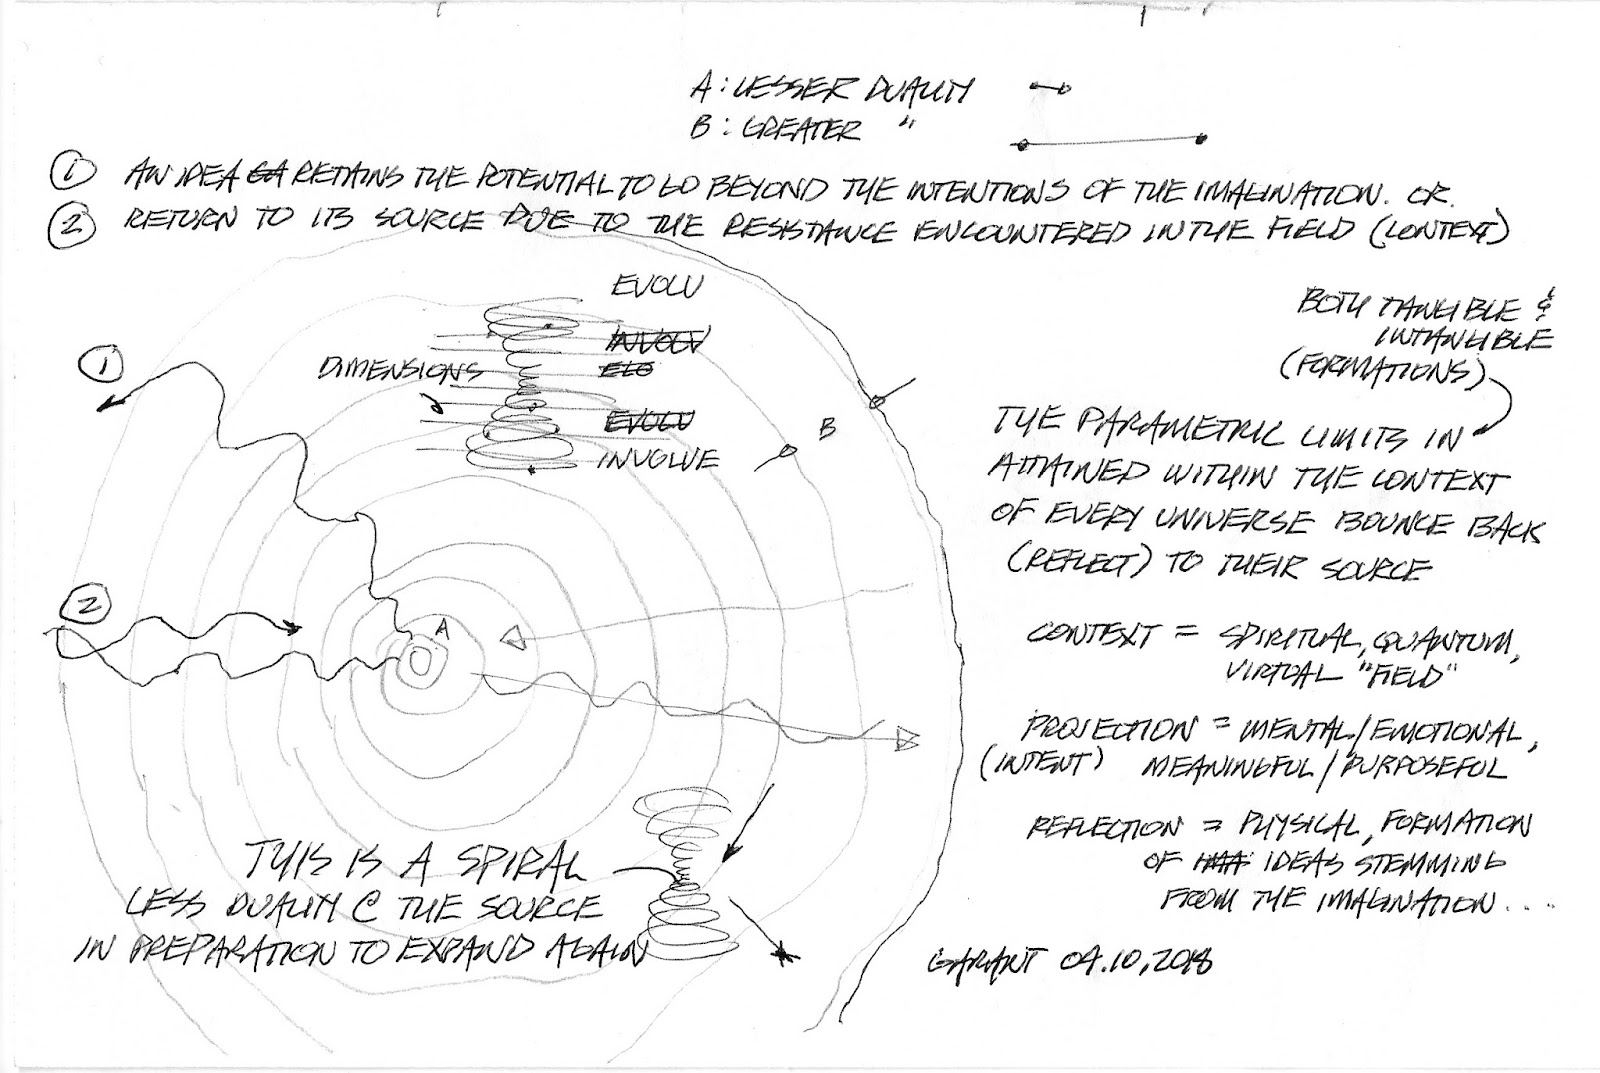 A: LESSER DUALITY
B: GREATER "
1 AN IDEA RETAINS THE POTENTIAL TO GO BEYOND THE INTENTIONS OF THE IMAGINATION. OR.
2 RETURN TO ITS SOURCE DUE TO THE RESISTANCE ENCOUNTERED IN THE FIELD (CONTEXT)
EVOLU
INVOLV
DIMENSIONS
ELO
EVOLU
INVOLVE
1
B
2
A
BOTH TANGIBLE &
INTANGIBLE
(FORMATIONS)
THE PARAMETRIC LIMITS IN
ATTAINED WITHIN THE CONTEXT
OF EVERY UNIVERSE BOUNCE BACK
(REFLECT) TO THEIR SOURCE
CONTEXT = SPIRITUAL, QUANTUM,
VIRTUAL "FIELD"
PROJECTION = MENTAL/EMOTIONAL,
(INTENT) MEANINGFUL/PURPOSEFUL
REFLECTION = PHYSICAL, FORMATION
OF IDEAS STEMMING
FROM THE IMAGINATION....
THIS IS A SPIRAL
LESS DUALITY @ THE SOURCE
IN PREPARATION TO EXPAND AGAIN
GARANT 04.10,2018